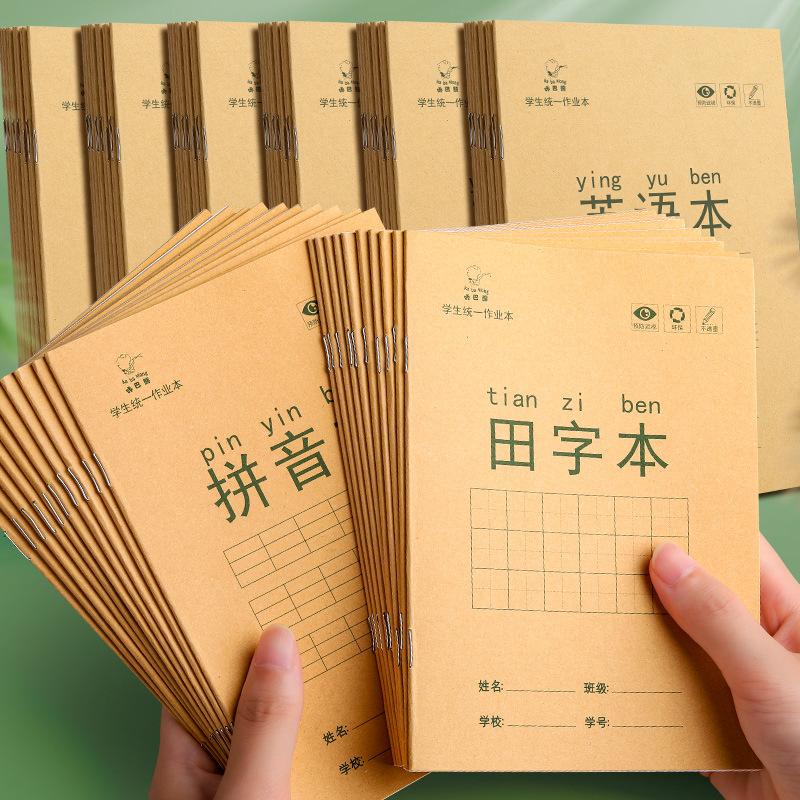 学生统一作业本
学生统一作业本
学生统一作业本
学生统一作业本
学生统一作业本
预防近视 环保 不透墨
ying yu ben
英语本
学生统一作业本
预防近视 环保 不透墨
tian zi ben
田字本
姓名: 班级:
学校: 学号:
ka ba xiong
咔巴熊
学生统一作业本
pin yin b
拼音
姓名:
学校: